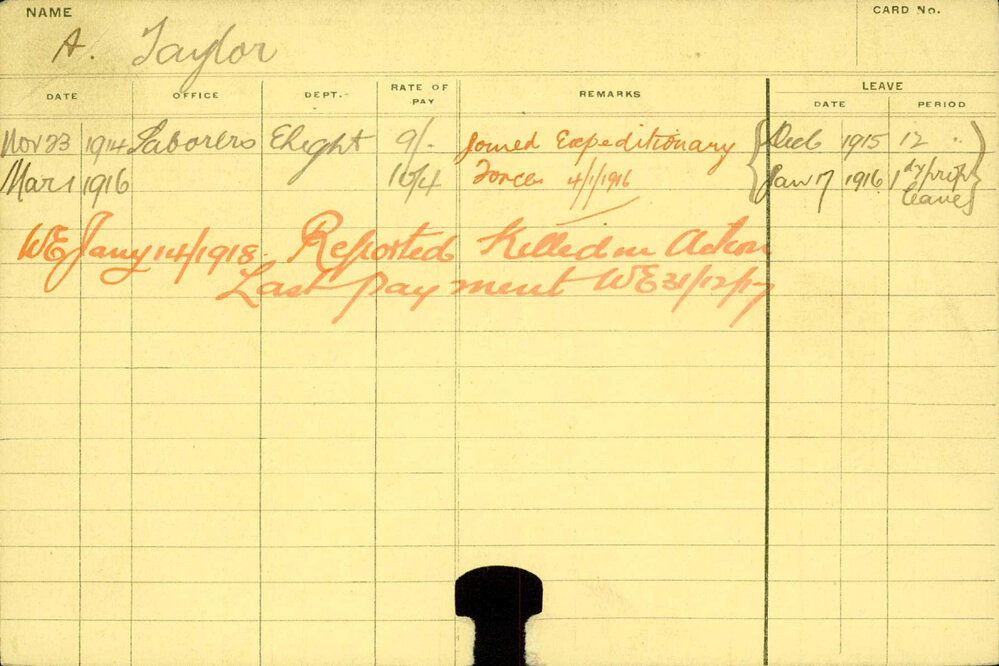 NAME
CARD No.
A. Taylor
DATE OFFICE DEPT. RATE OF PAY REMARKS LEAVE
DATE PERIOD
Nov 23 1914 Laborers Elight 9/- Joined Expeditionary Dec 6 1915 12 "
Mar 1 1916 10/4 Forces 4/1/1916 Jan 7 1916 1
leaves
WE Jany 14/1918 Reported Killed in Action
Last payment WE 31/12/17